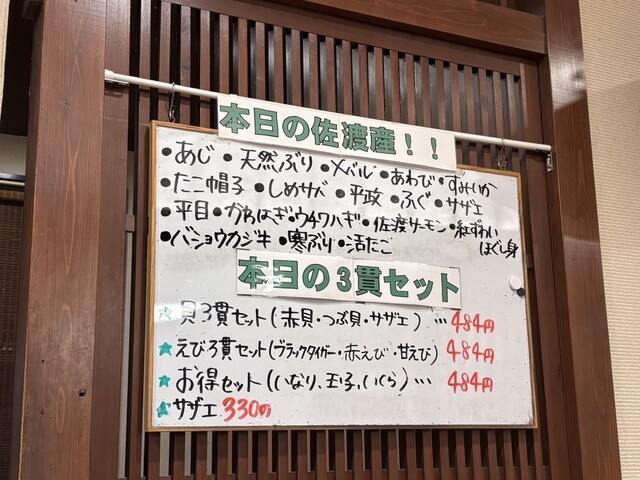 本日の佐渡産！！
●あじ ●天然ぶり ●メバル ●あわび ●すみいか
●たこ帽子 ●しめサバ ●平政 ●ふぐ ●サザエ
●平目 ●かわはぎ ●ウチワハギ ●佐渡サーモン ●紅ずわい
ほぐし身
●バショウカジキ ●寒ぶり ●活たこ
本日の3貫セット
★貝3貫セット(赤貝・つぶ貝・サザエ) … 484円
★えび3貫セット(ブラックタイガー・赤えび・甘えび) 484円
★お得セット(いなり、玉子、いくら)… 484円
★サザエ 330円